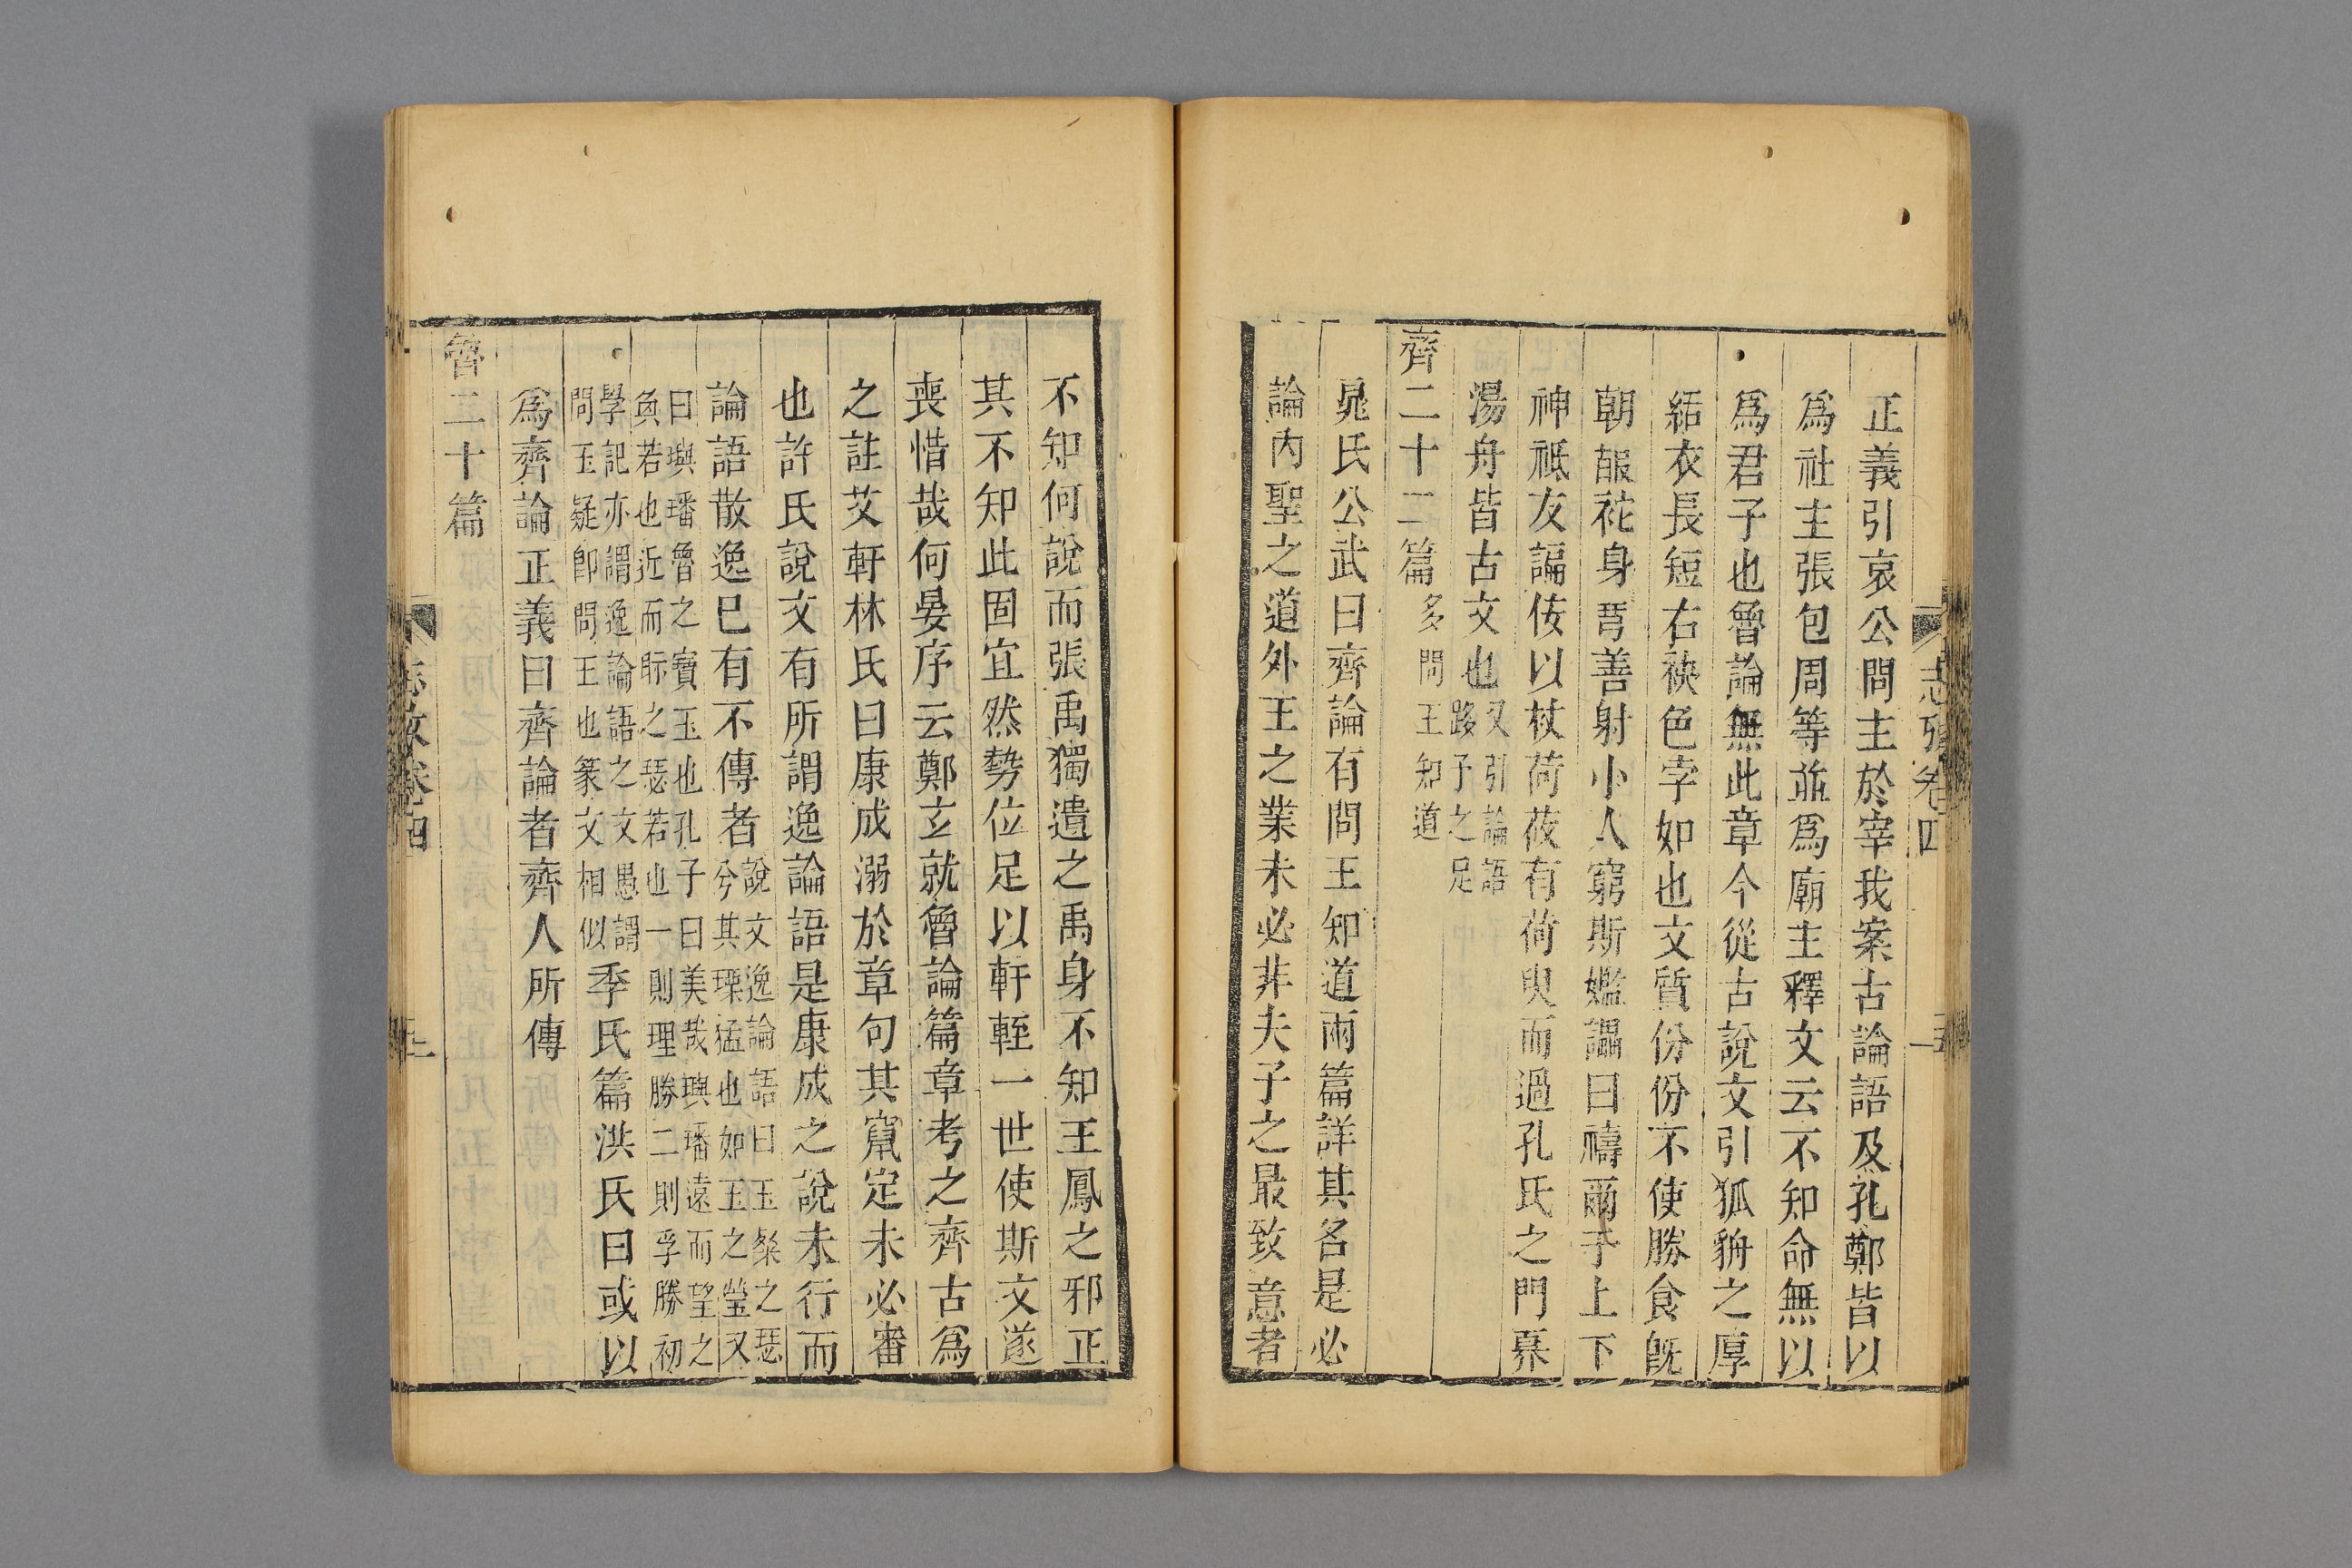 正義引哀公問主於宰我案古論語及孔鄭皆以
爲社主張包周等並爲廟主釋文云不知命無以
爲君子也魯論無此章今從古說文引狐貈之厚
絬衣長短右袂色孛如也文質份份不使勝食旣
朝服袉身羿善射小人窮斯㜮讄曰禱爾于上下
神祗友諞佞以杖荷莜有荷臾而過孔氏之門𡘋
湯舟皆古文也又引論語跢予之足
齊二十二篇多問王知道
晁氏公武曰齊論有問王知道兩篇詳其名是必
論內聖之道外王之業未必非夫子之最致意者
不知何說而張禹獨遺之禹身不知王鳳之邪正
其不知此固宜然勢位足以軒輊一世使斯文遂
喪惜哉何晏序云鄭玄就魯論篇章考之齊古爲
之註艾軒林氏曰康成溺於章句其竄定未必審
也許氏說文有所謂逸論語是康成之說未行而
論語散逸巳有不傳者說文逸論語曰玉粲之瑟兮其瑮猛也如玉之瑩又
曰璵璠魯之寶玉也孔子曰美哉璵璠遠而望之奐若也近而眎之瑟若也一則理勝二則孚勝初
學記亦謂逸論語之文愚謂問玉疑卽問王也篆文相似季氏篇洪氏曰或以
爲齊論正義曰齊論者齊人所傳
魯二十篇
志攷卷四